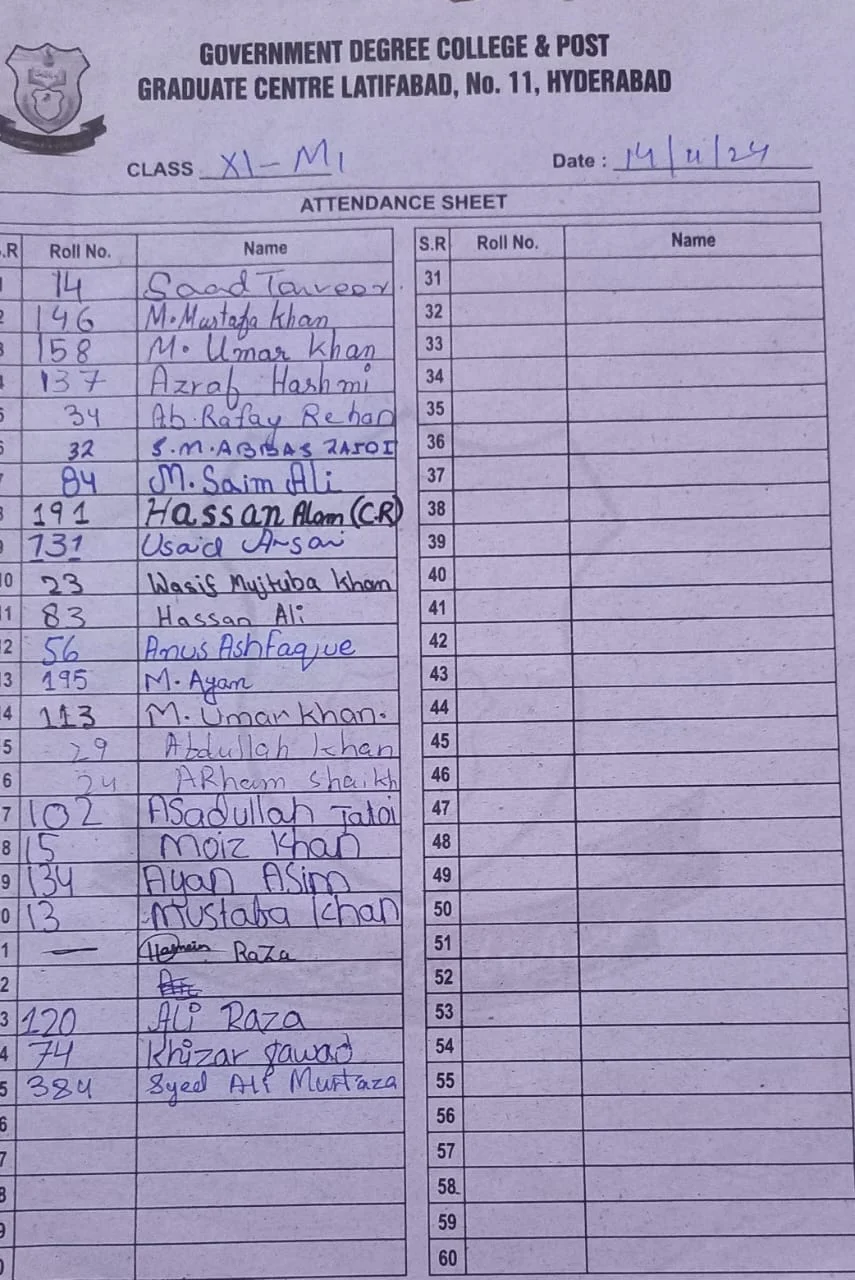 GOVERNMENT DEGREE COLLEGE & POST
GRADUATE CENTRE LATIFABAD, No. 11, HYDERABAD
CLASS XI-M1 Date : 14/11/24
ATTENDANCE SHEET
S.R Roll No. Name S.R Roll No. Name
14 Saad Tanveer 31
146 M. Mustafa Khan 32
158 M. Umar Khan 33
137 Azraf Hashmi 34
34 Ab. Rafay Rehan 35
32 S.M. ABBAS ZAIDI 36
84 M. Saim Ali 37
191 Hassan Alam (C.R) 38
131 Usaid Ansari 39
10 23 Wasif Mujtuba Khan 40
11 83 Hassan Ali 41
12 56 Anus Ashfaque 42
13 195 M. Ayan 43
14 113 M. Umar Khan. 44
15 29 Abdullah Khan 45
16 24 ARham Shaikh 46
17 102 ASadullah Jatoi 47
18 15 Moiz Khan 48
19 134 Ayan ASim 49
20 13 Mustaba Khan 50
21 — Hasnain RaZa 51
22 52
23 120 ALi Raza 53
24 74 Khizar Jawad 54
25 384 Syed Ali Murtaza 55
26 56
27 57
28 58
29 59
60